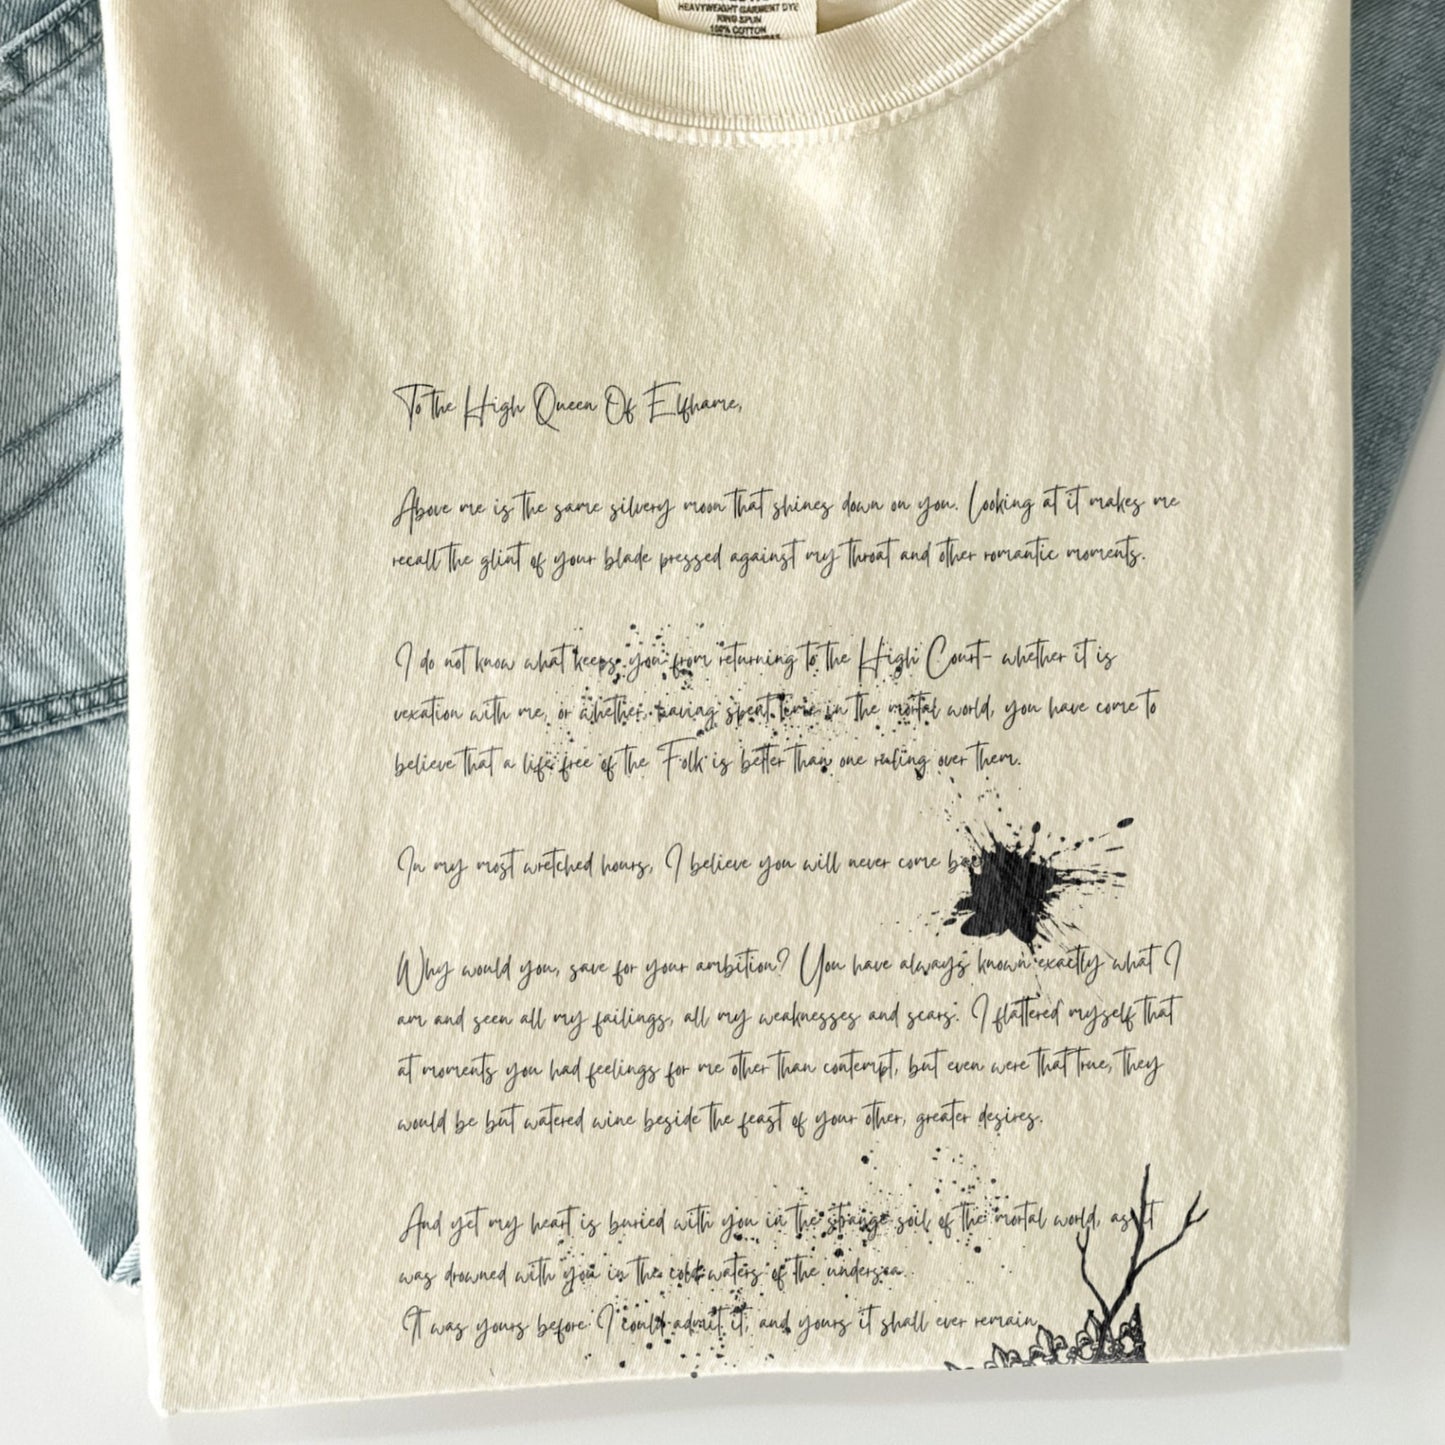 HEAVYWEIGHT GARMENT DYE
RING SPUN
100% COTTON
To the High Queen Of Elfhame,
Above me is the same silvery moon that shines down on you. Looking at it makes me
recall the glint of your blade pressed against my throat and other romantic moments.
I do not know what keeps you from returning to the High Court- whether it is
vexation with me, or whether, having spent time in the mortal world, you have come to
believe that a life free of the Folk is better than one ruling over them.
In my most wretched hours, I believe you will never come
Why would you, save for your ambition? You have always known exactly what I
am and seen all my failings, all my weaknesses and scars. I flattered myself that
at moments you had feelings for me other than contempt, but even were that true, they
would be but watered wine beside the feast of your other, greater desires.
And yet my heart is buried with you in the strange soil of the mortal world, as it
was drowned with you in the cold waters of the undersea.
It was yours before I could admit it, and yours it shall ever remain.